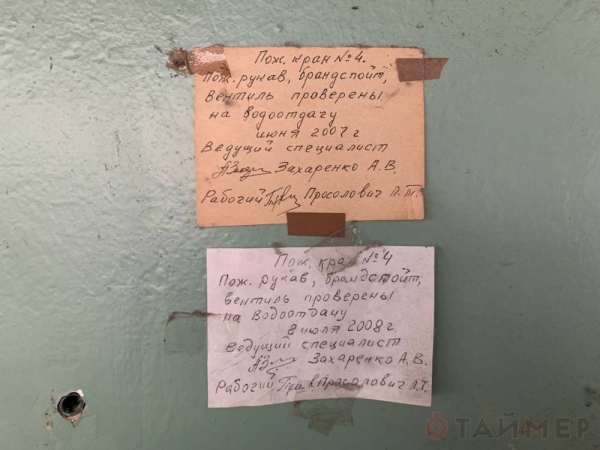 Пож. кран №4.
Пож. рукав, брандспойт,
вентиль проверены
на водоотдачу
июня 2007 г
Ведущий специалист
Захаренко А.В.
Рабочий Просолович Л.Т.
Пож. кран №4
Пож. рукав, брандспойт,
вентиль проверены
на водоотдачу
8 июля 2008 г.
Ведущий специалист
Захаренко А.В.
Рабочий Просолович Л.Т.
ТАЙМЕР